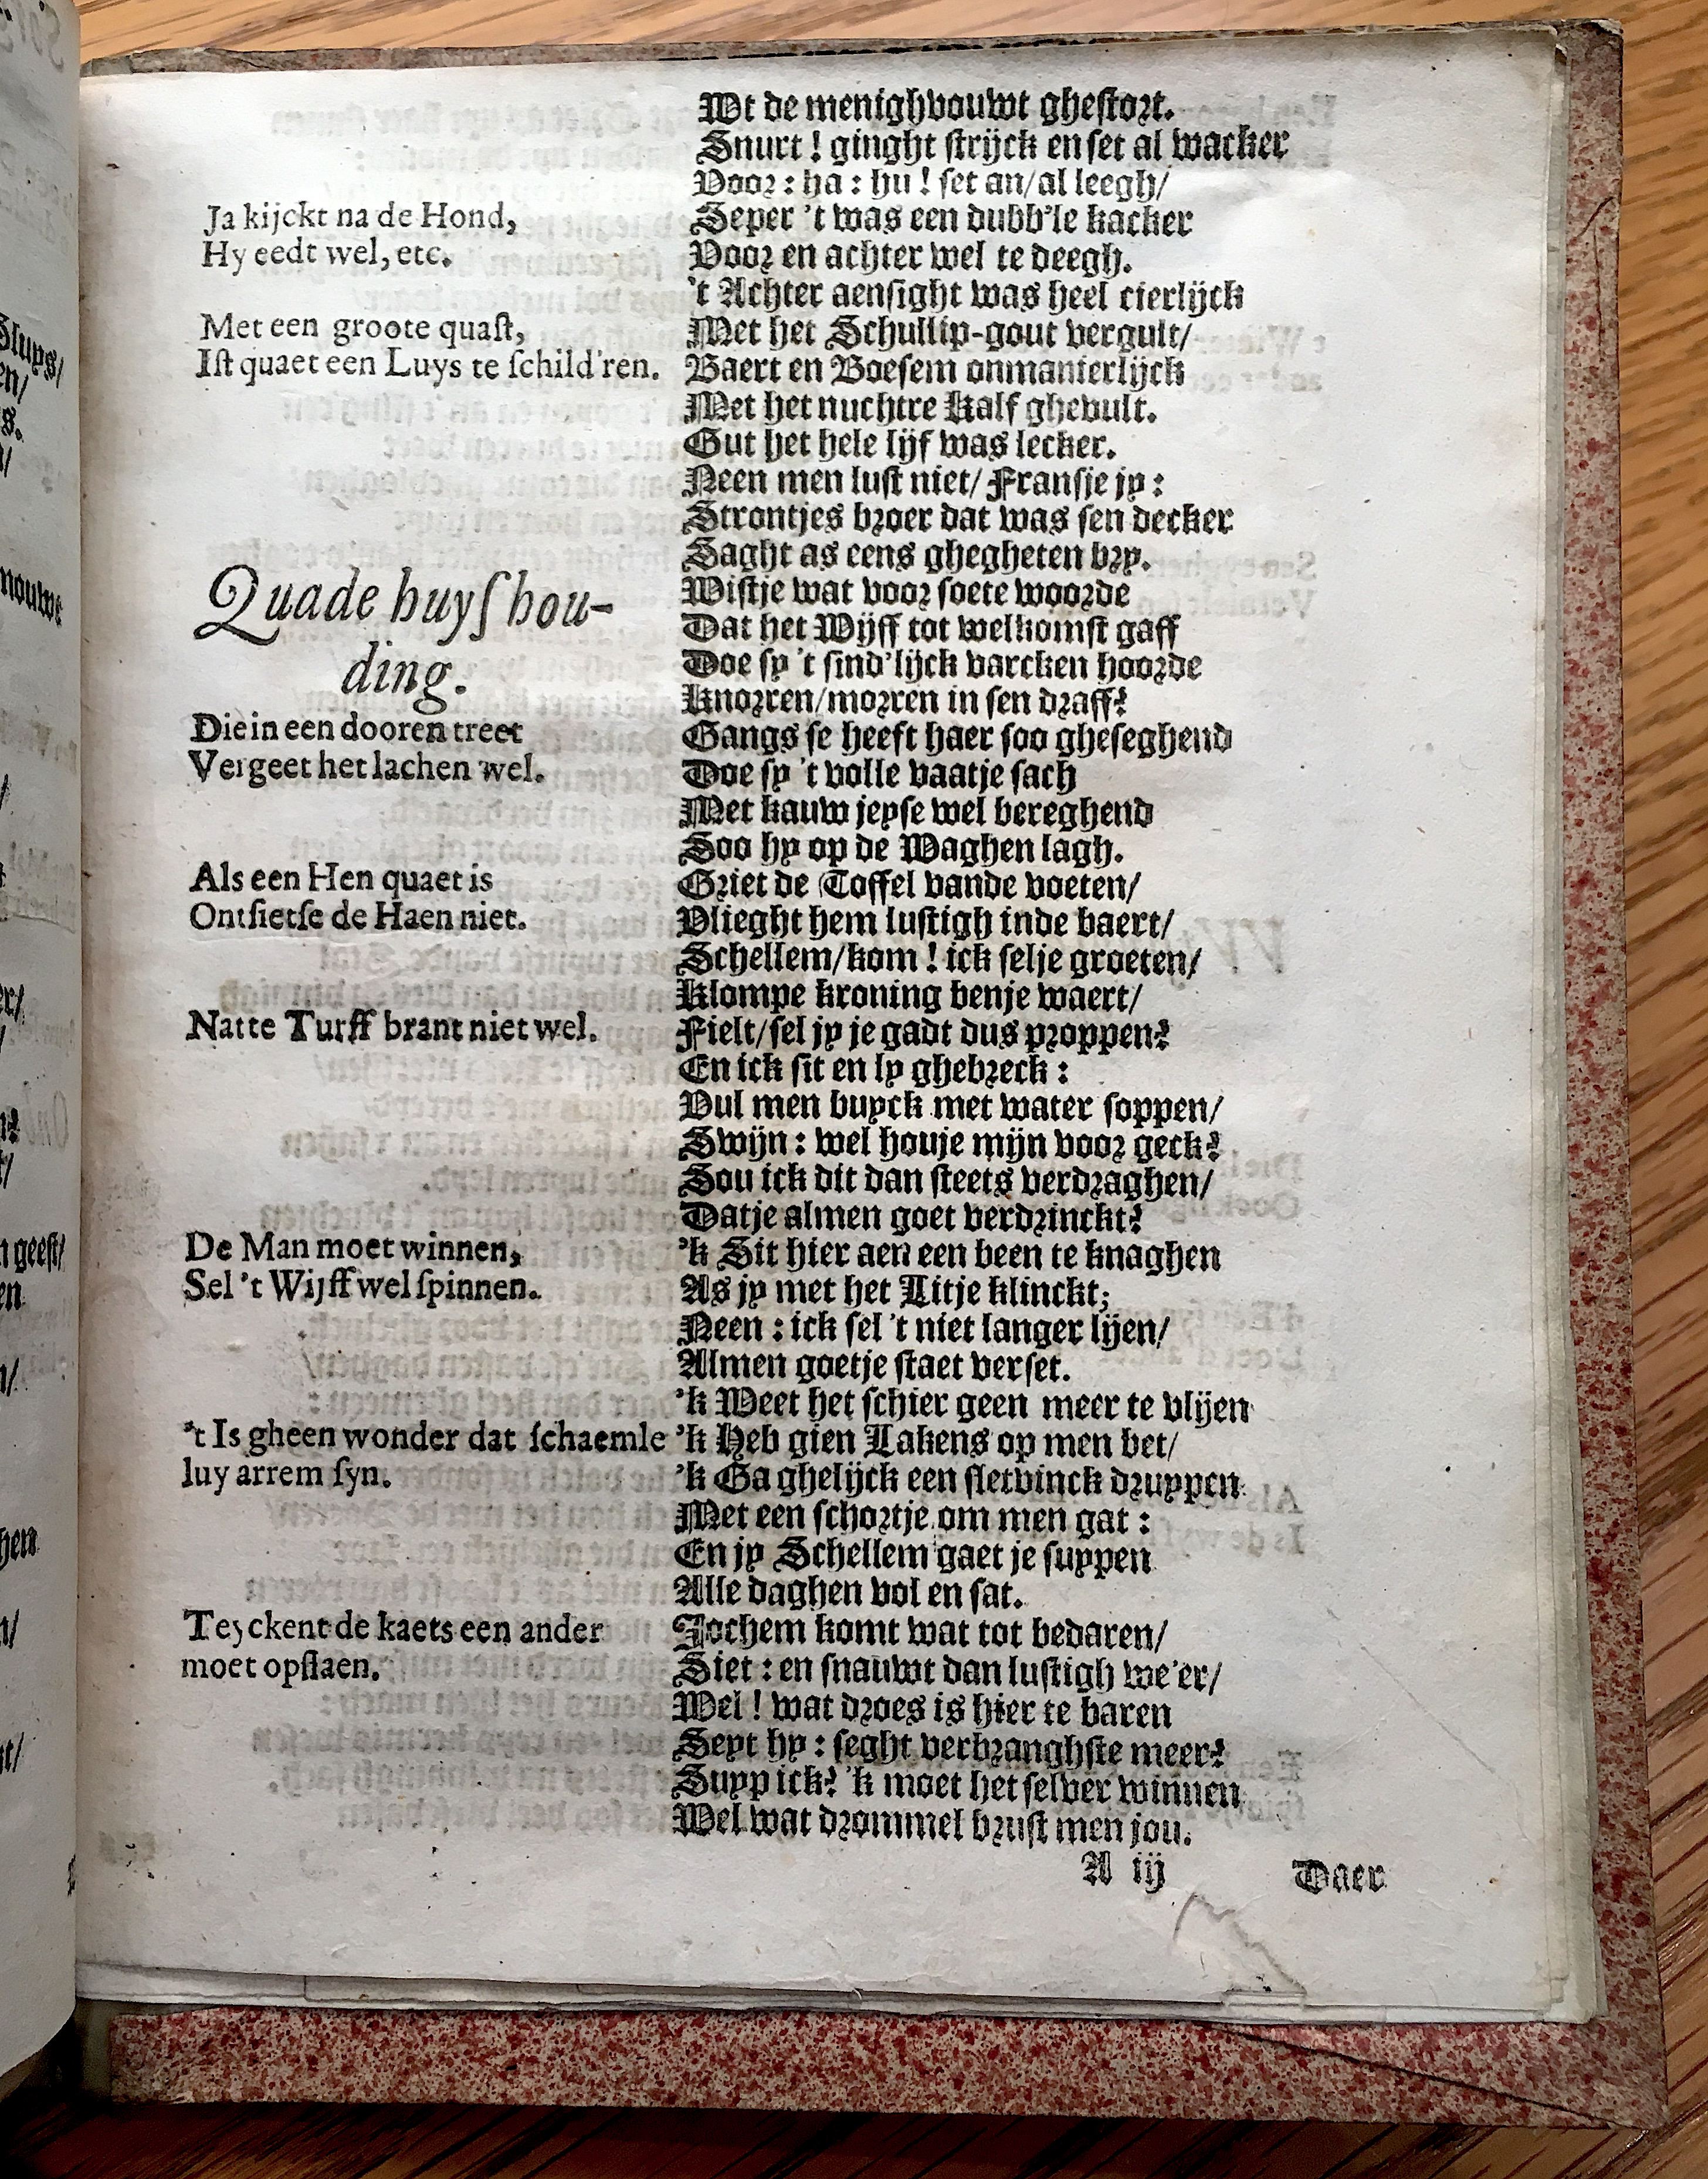 Wt de menighvouwt ghestort.
Snurt! ginght strijck en set al wacker
Voor: ha: hu! set an/al leegh/
Ja kijckt na de Hond,
Hy eedt wel, etc.
Seper 't was een dubb'le kacker
Voor en achter wel te deegh.
't Achter aensight was heel cierlijck
Met een groote quast,
Ist quaet een Luys te schild'ren.
Met het Schullip-gout vergult/
Baert en Boesem onmanierlijck
Met het nuchtre Kalf ghevult.
Gut het hele lijf was lecker.
Neen men lust niet/ Fransje jy:
Strontjes broer dat was sen decker
Saght as eens ghegheten bry.
Quade huyshou-
ding.
Wistje wat voor soete woorde
Dat het Wijff tot welkomst gaff
Doe sy 't sind'lijck varcken hoorde
Knorren/morren in sen draff?
Die in een dooren treet
Vergeet het lachen wel.
Gangs se heeft haer soo gheseghend
Doe sy 't volle vaatje sach
Met kauw jeyse wel bereghend
Soo hy op de Waghen lagh.
Als een Hen quaet is
Ontsietse de Haen niet.
Griet de Toffel vande voeten/
Vlieght hem lustigh inde baert/
Schellem/kom! ick selje groeten/
Klompe kroning benje waert/
Natte Turff brant niet wel.
Fielt/sel jy je gadt dus proppen?
En ick sit en ly ghebreck:
Vul men buyck met water soppen/
Swijn: wel houje mijn voor geck?
Sou ick dit dan steets verdraghen/
Datje almen goet verdrinckt?
De Man moet winnen,
Sel 't Wijff wel spinnen.
'k Sit hier aen een been te knaghen
As jy met het Litje klinckt;
Neen: ick sel 't niet langer lijen/
Almen goetje staet verset.
'k Weet het schier geen meer te vlijen
't Is gheen wonder dat schaemle
luy arrem syn.
'k Heb gien Lakens op men bet/
'k Ga ghelijck een sletvinck druypen
Met een schortje om men gat:
En jy Schellem gaet je suypen
Alle daghen vol en sat.
Teyckent de kaets een ander
moet opslaen.
Jochem komt wat tot bedaren/
Siet: en snauwt dan lustigh we'er/
Wel! wat droes is hier te baren
Seyt hy: seght verbranghste meer?
Suyp ick? 'k moet het selver winnen
Wel wat drommel brust men jou.
A ij Daer